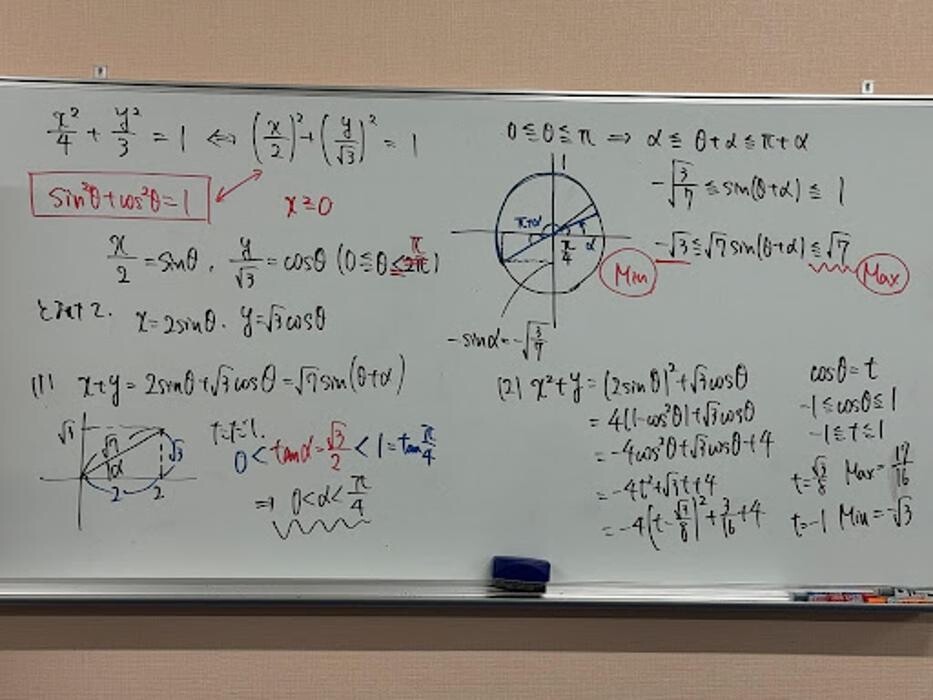 x²/4 + y²/3 = 1 ⇔ (x/2)² + (y/√3)² = 1
sin²θ + cos²θ = 1
x ≧ 0
x/2 = sinθ, y/√3 = cosθ (0 ≦ θ ≦ π)
x = 2sinθ, y = √3cosθ
(1) x + y = 2sinθ + √3cosθ = √7sin(θ+α)
√3 √7 √3 α 2 2
0 < tanα = √3/2 < 1 = tan π/4
⇒ 0 < α < π/4
0 ≦ θ ≦ π ⇒ α ≦ θ+α ≦ π+α
-√(3/7) ≦ sin(θ+α) ≦ 1
1 π+α π/4 α
-√3 ≦ √7sin(θ+α) ≦ √7
Min Max
-sinα = -√(3/7)
(2) x² + y = (2sinθ)² + √3cosθ
= 4(1-cos²θ) + √3cosθ
= -4cos²θ + √3cosθ + 4
= -4t² + √3t + 4
= -4(t - √3/8)² + 3/16 + 4
cosθ = t
-1 ≦ cosθ ≦ 1
-1 ≦ t ≦ 1
t = √3/8 Max =
t = -1 Min = -√3